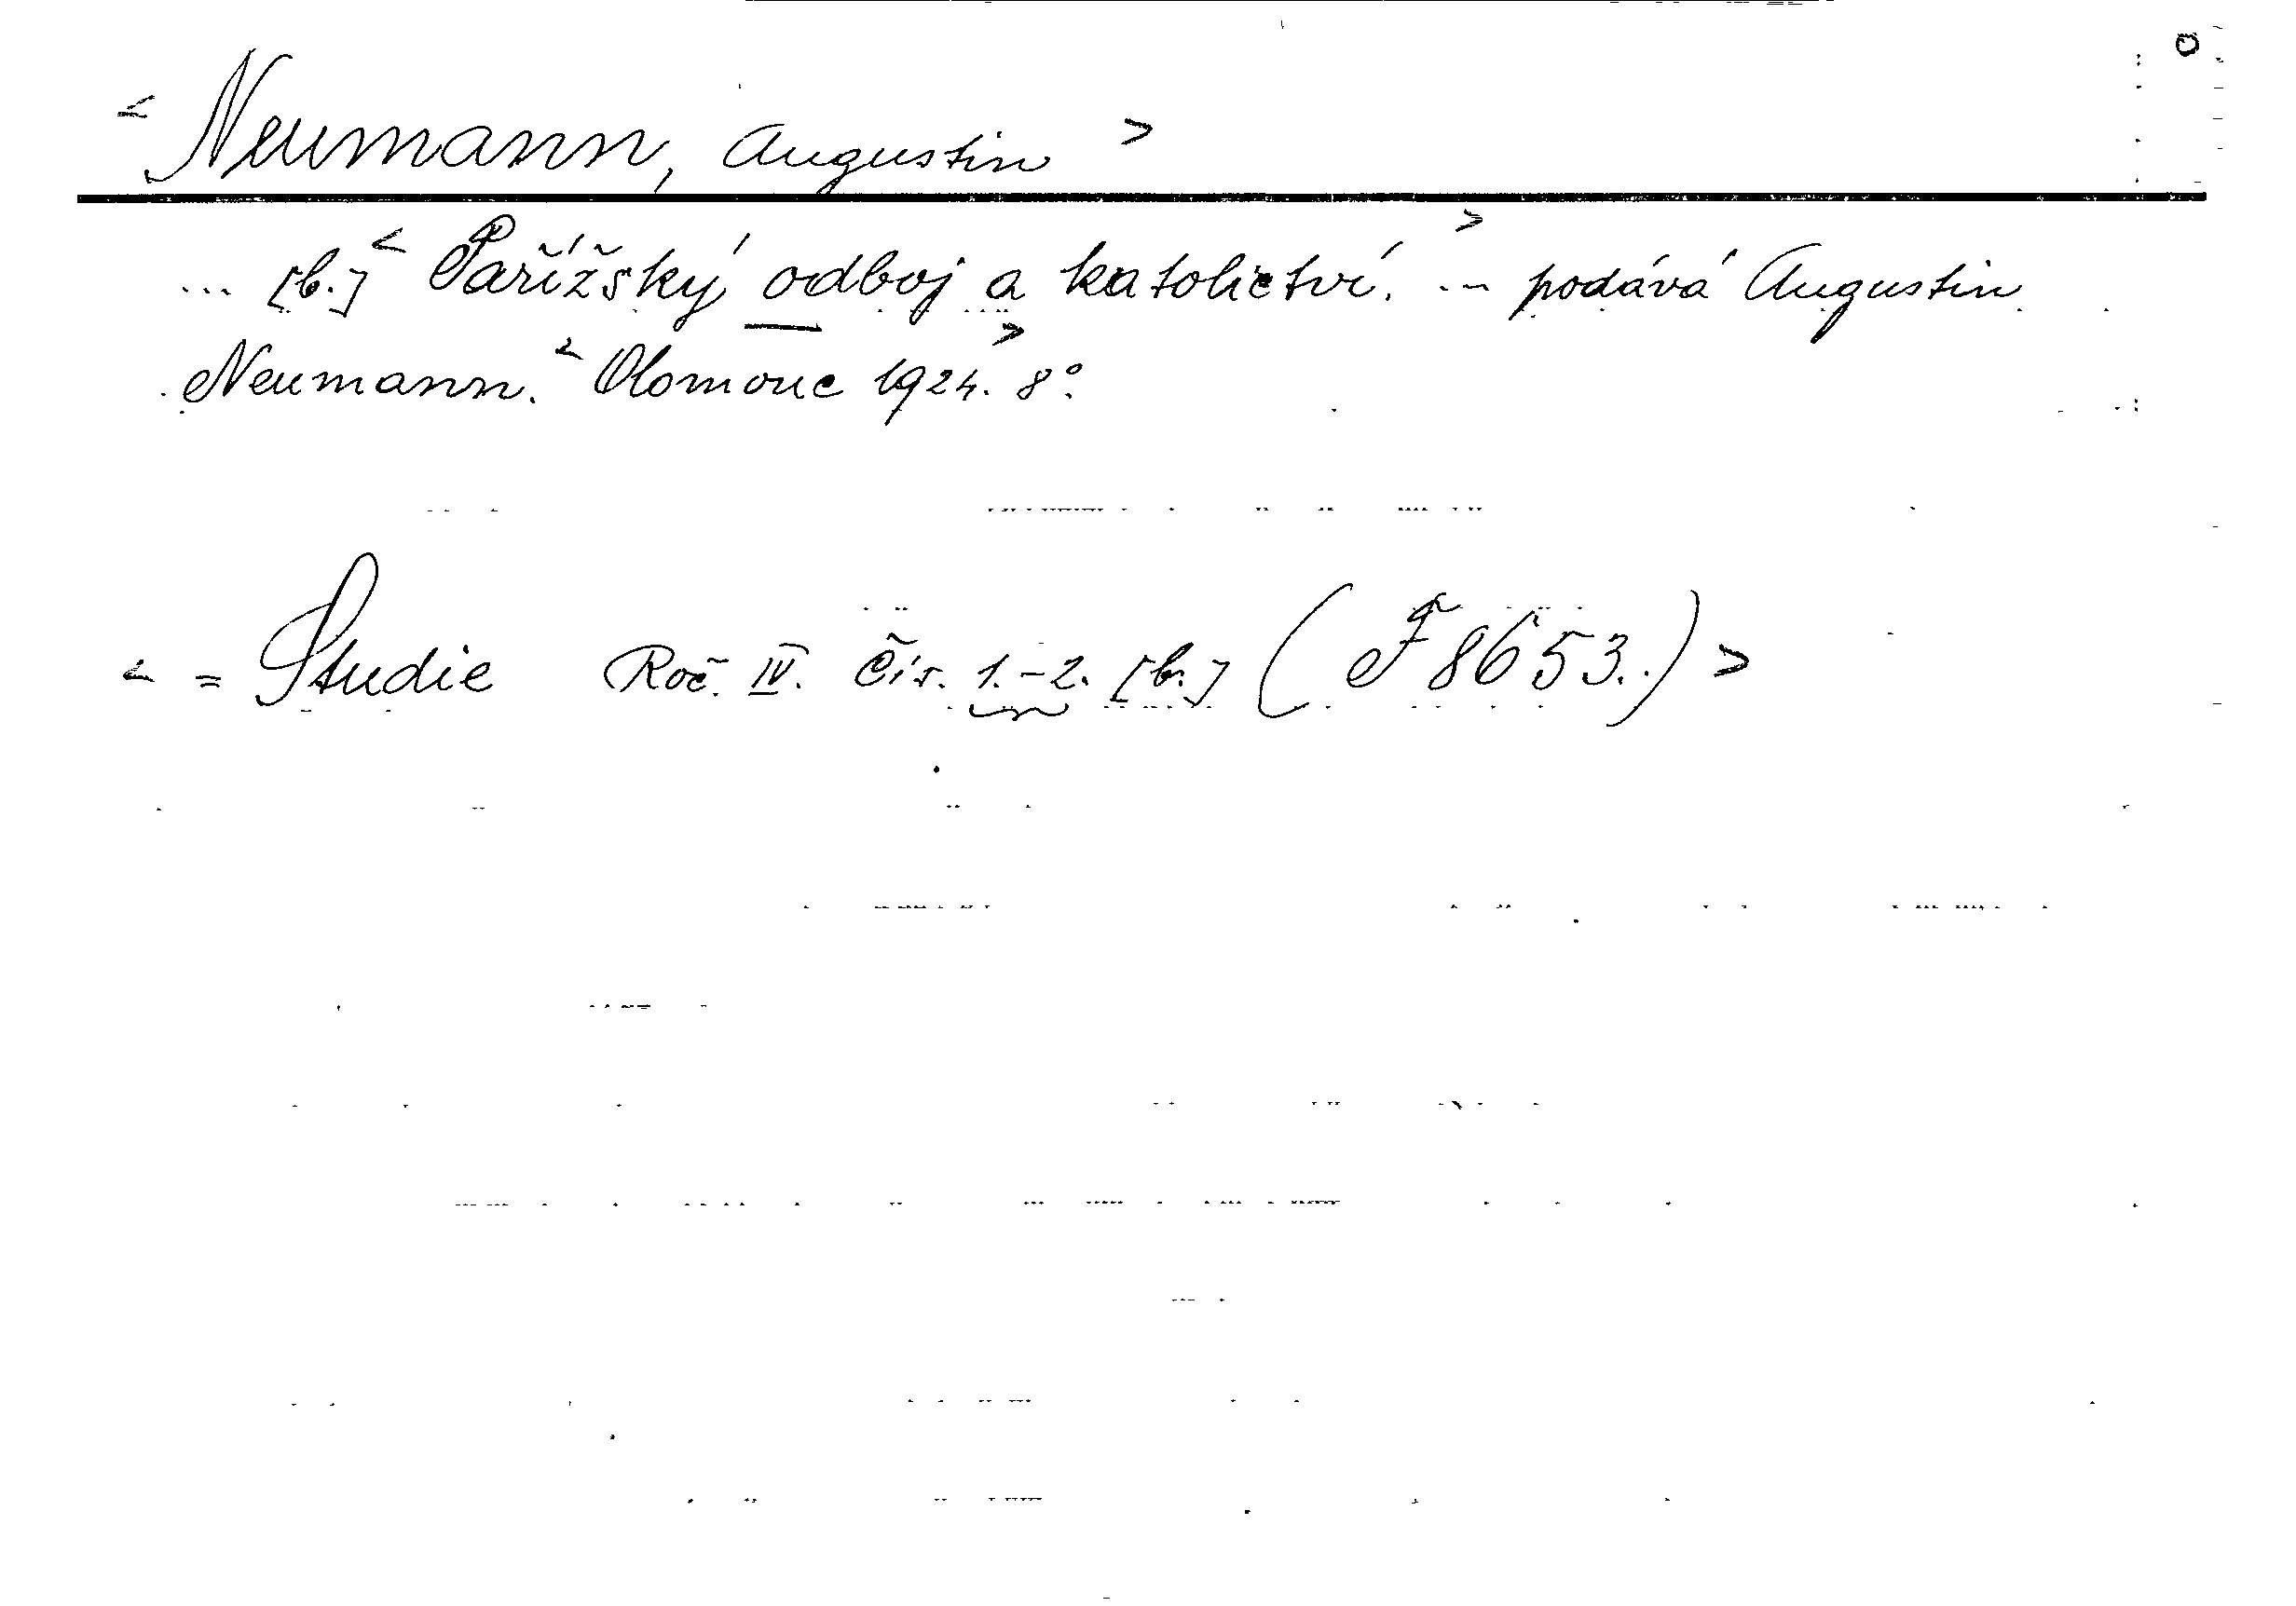 < Neumann, Augustin >
... [b.] < Pařížský odboj a katolictví. > ... podává Augustin
Neumann. < Olomouc 1924. > 8°.
< = Studie Roč. IV. Čís. 1.-2. [b.] (F 8653.) >